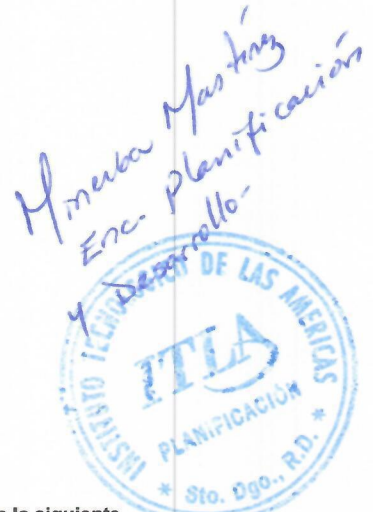 Minerba Martínez
Enc. Planificación
y Desarrollo-
INSTITUTO TECNOLOGICO DE LAS AMERICAS
ITLA
PLANIFICACIÓN
* Sto. Dgo., R.D. *
lo siguiente